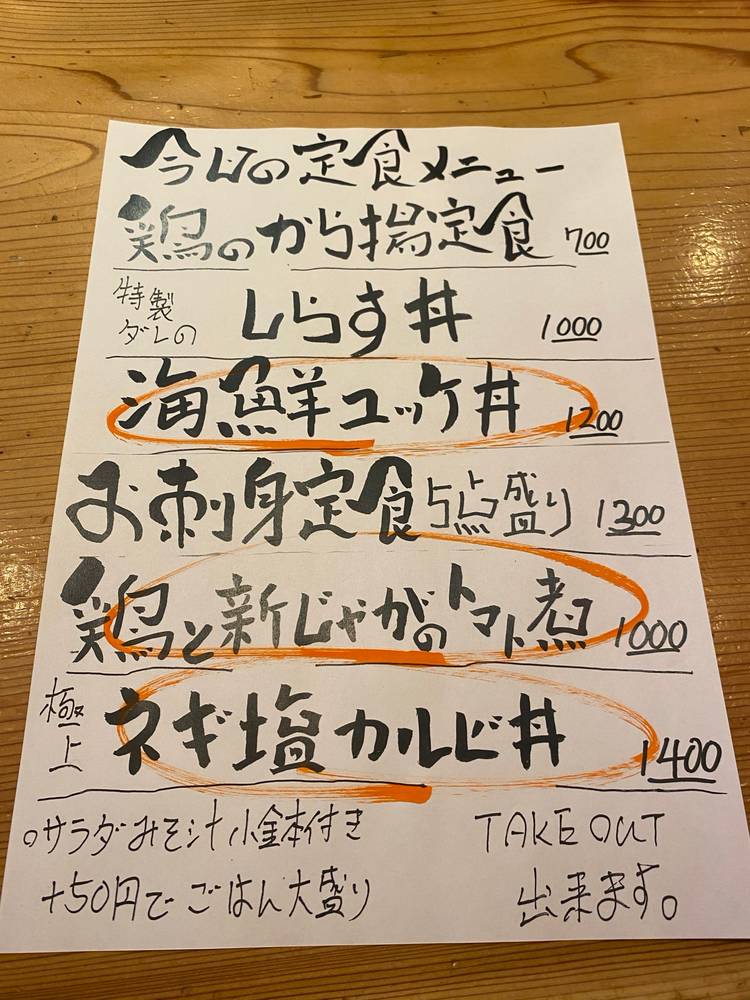 今日の定食メニュー
鶏のから揚定食 700
特製ダレの しらす丼 1000
海鮮ユッケ丼 1200
お刺身定食 5点盛り 1300
鶏と新じゃがのトマト煮 1000
極上 ネギ塩カルビ丼 1400
○サラダみそ汁小鉢付き TAKE OUT
+50円でごはん大盛り 出来ます。